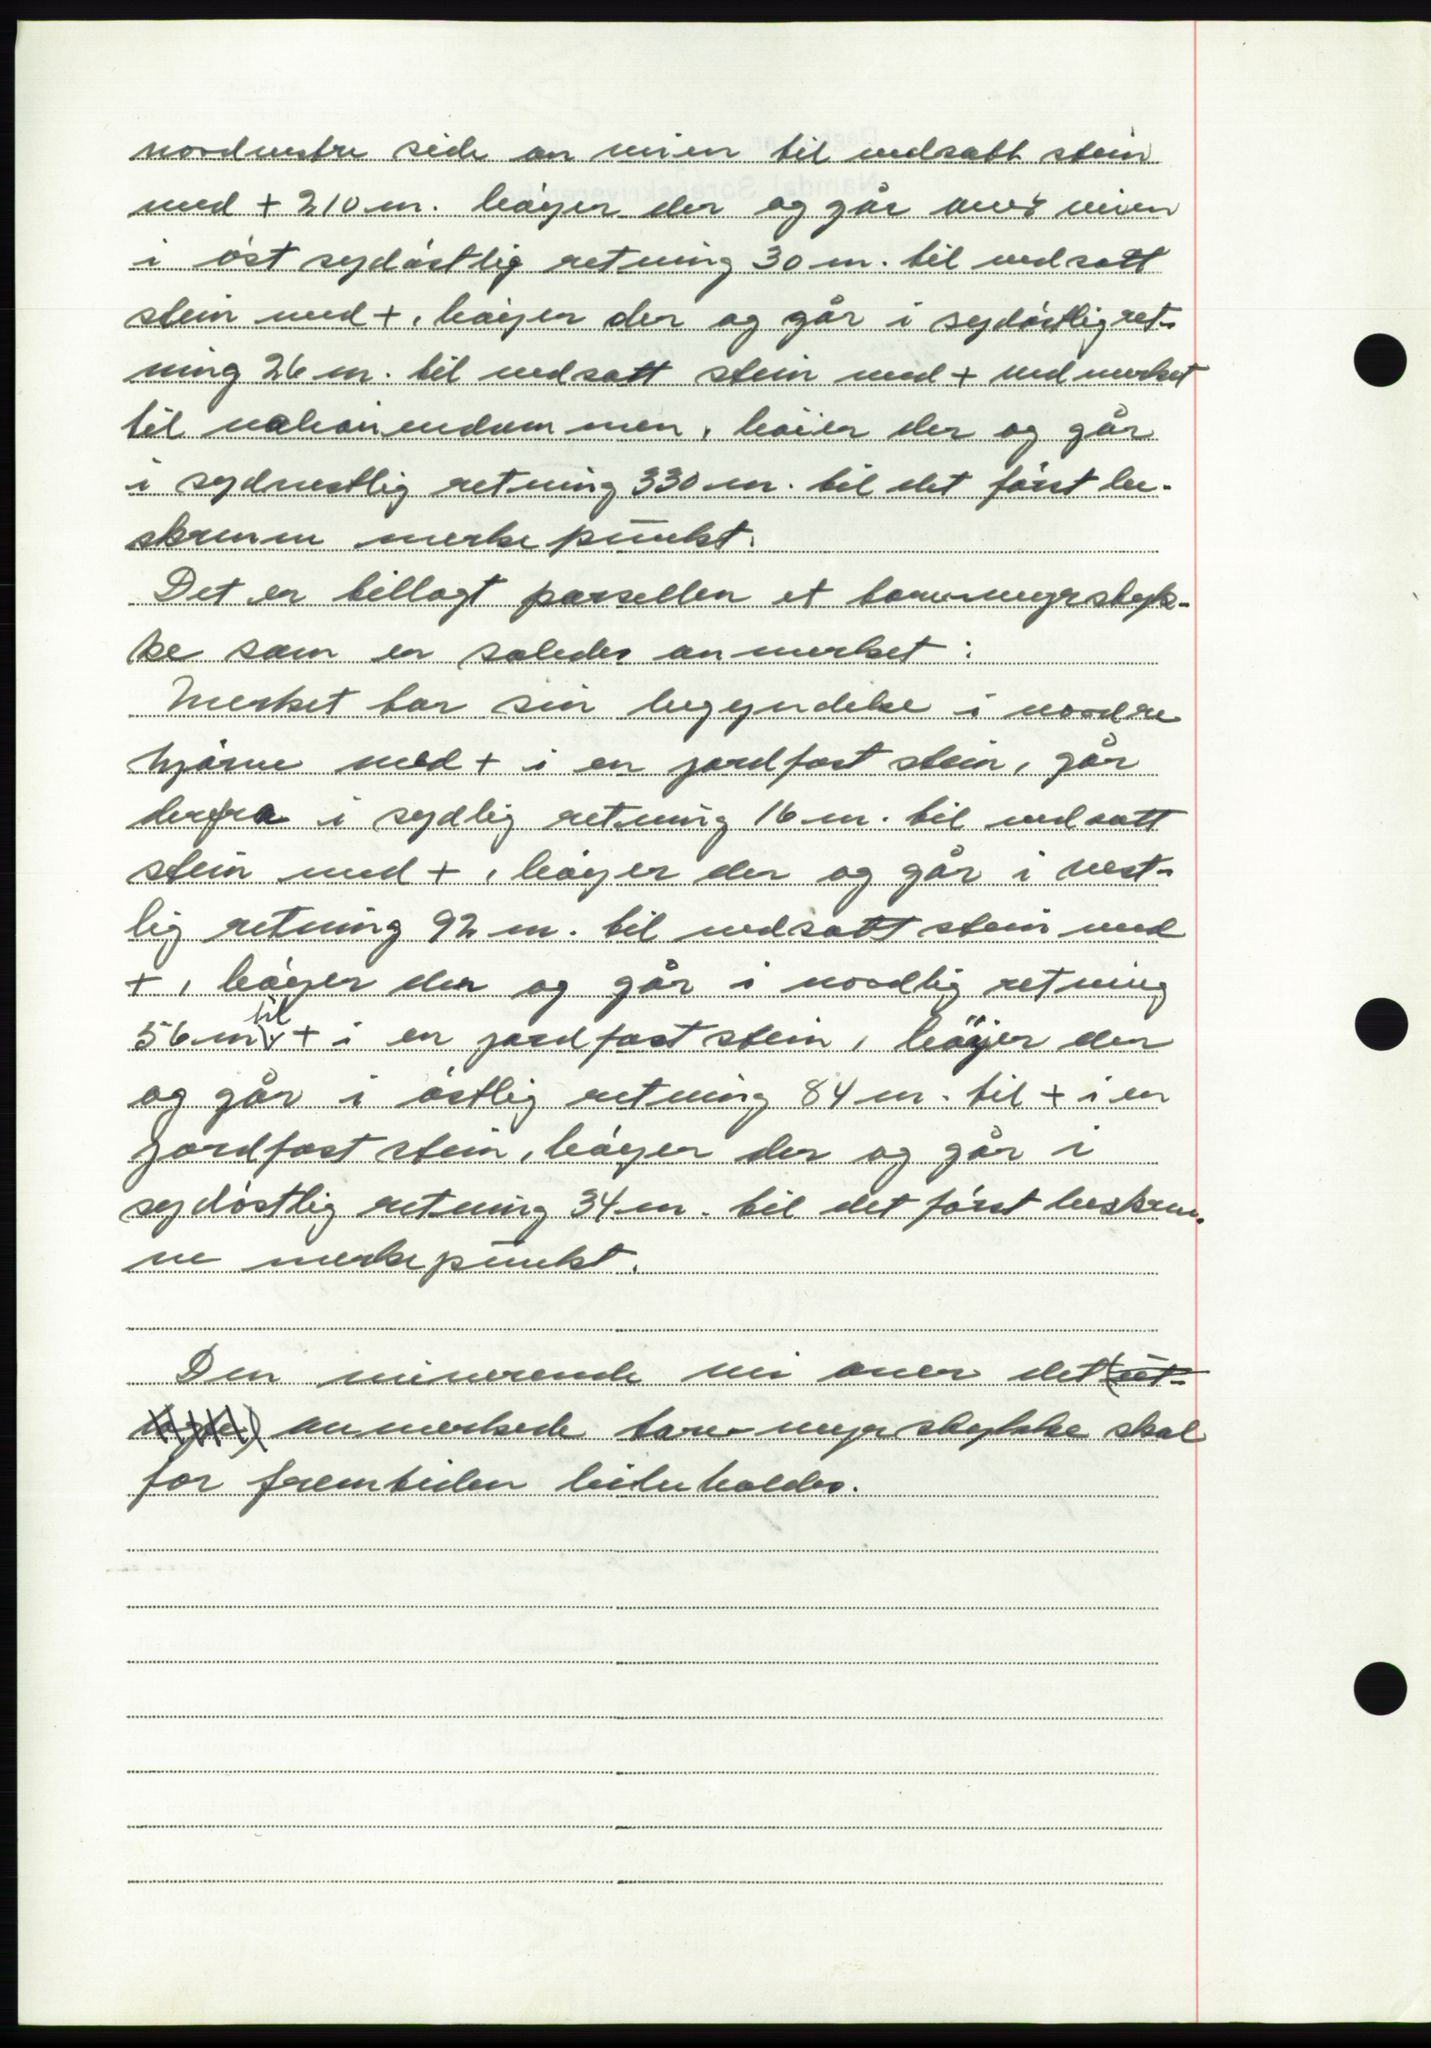 nordvestre side av veien til nedsatt stein
med + 210 m. bøyer der og går over veien
i øst sydøstlig retning 30 m. til nedsatt
stein med +, bøyer der og går i sydøstlig ret-
ning 26 m. til nedsatt stein med + ved merket
til naboeiendommen, bøier der og går
i sydvestlig retning 330 m. til det først be-
skrevne merkepunkt.
Det er tillagt parsellen et torvmyrstyk-
ke som er således anmerket:
Merket tar sin begyndelse i nordre
hjørne med + i en jordfast stein, går
derfra i sydlig retning 16 m. til nedsatt
stein med +, bøyer der og går i vest-
lig retning 92 m. til nedsatt stein med
+, bøyer der og går i nordlig retning
56 m. til + i en jordfast stein, bøyer der
og går i østlig retning 84 m. til + i en
jordfast stein, bøyer der og går i
sydøstlig retning 34 m. til det først beskrev-
ne merkepunkt.
Den nuværende vei over det (ut-
anmerkede torvmyrstykke skal
for fremtiden beibeholdes.